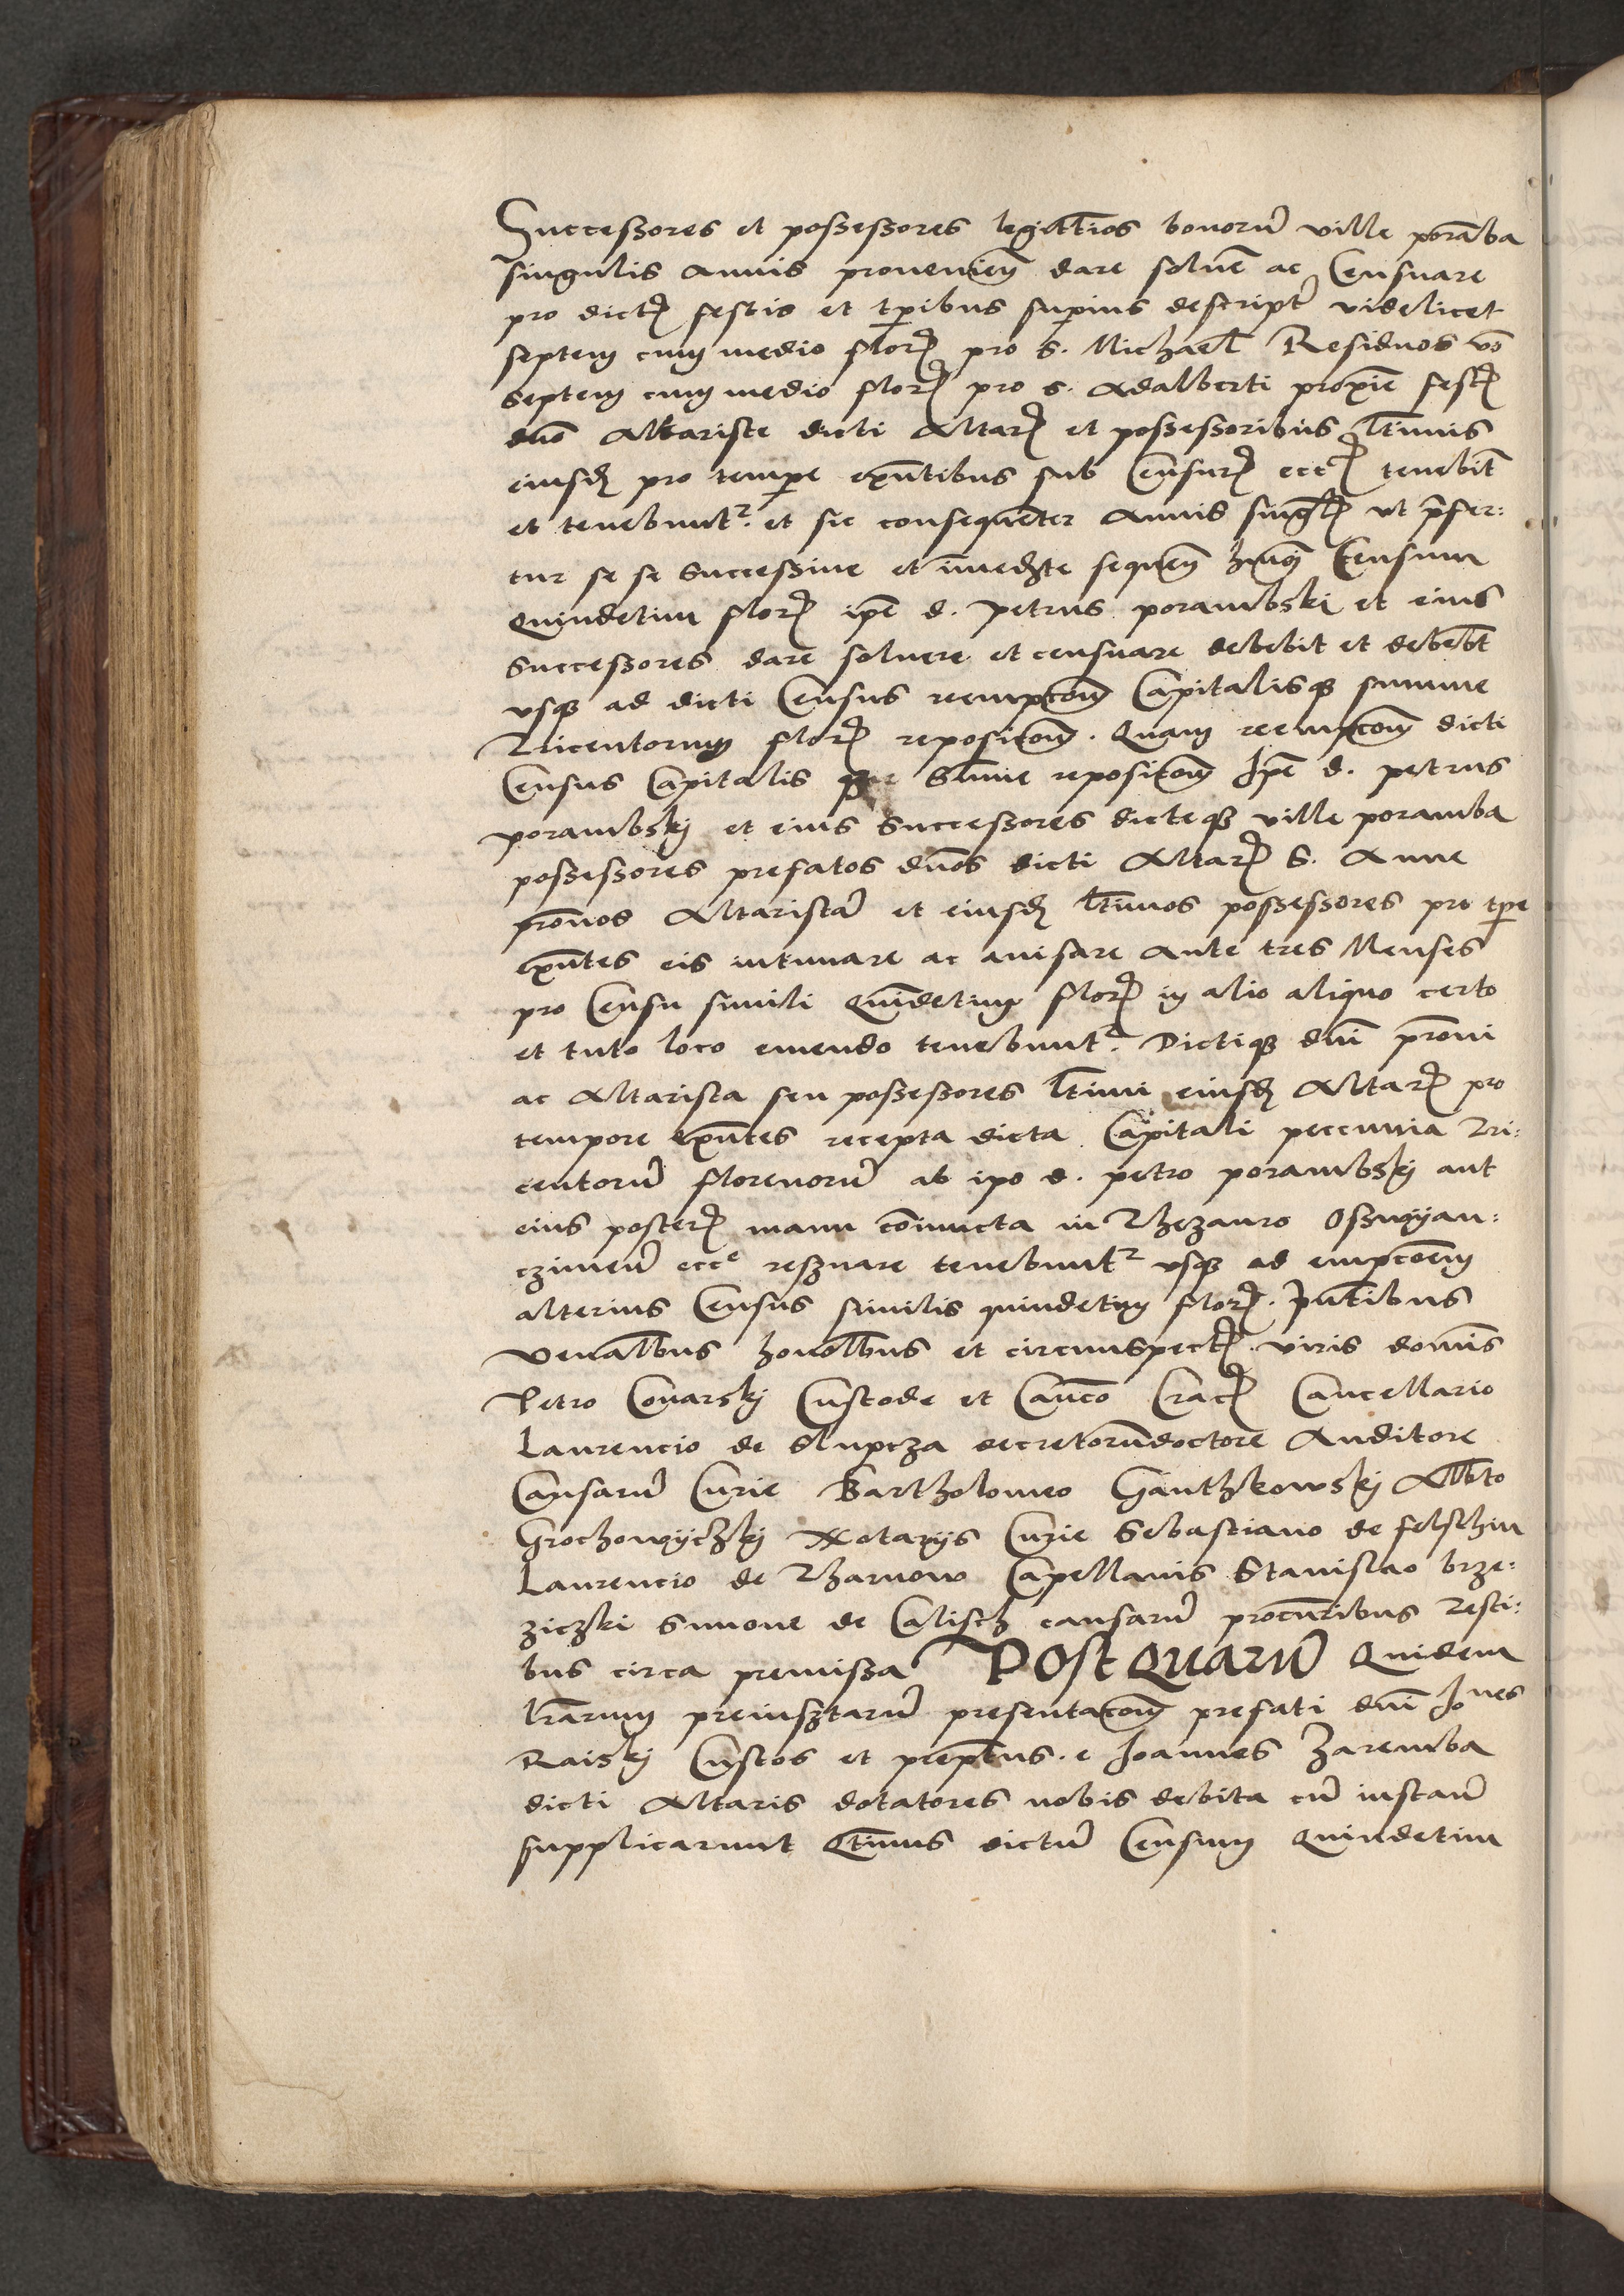 Successores et possessores legittīos bonorū ville porāba
singulis annis provenieñ dare solvēe ac Censuare
pro dict̃ festis et tp̄ibus superius descript̃ videlicet
septem cum medio flor̃ pro S. Michael̄ Residuos vō
septem cum medio flor̃ pro s. Adalberti proxīe fest̃
dn̄o Altariste dicti Altar̃ et possessoribus lt̄imis
eiusd̃ pro tempe exn̄tibus sub Censur̃ ecc̃ tenebit̃
et tenebunt͛. et sic consequenter Annis singl̃ ut p̄fer:
tur se se successive et immedīate sequeñ hmōi Censum
quindecim flor̃ ip̄e d. petrus porambski et eius
successores dare solvere et censuare debebit et debebūt
usq3 ad dicti Census reempcōem Capitalisq3 summe
Tricentorum flor̃ reposicōem. Quam reempcōem dicti
Census Capitalis summe reposicōem Ip̄e d. petrus
porambskij et eius successores dicteq3 ville poramba
possessores prefatos dn̄os dicti Altar̃ S. Anne
pronos Altaristā et eiusd̃ lt̄imos possessores pro tp̄e
exn̄tes eis intimare ac avisare ante tres Menses
pro Censu simili Quīdecim flor̃ in alio aliquo certo
et tuto loco emendo tenebunt͛. Dictiq3 dn̄i proni
ac Altarista seu possessores lt̄imi eiusd̃ Altar̃ pro
tempore exn̄tes recepta dicta Capitali peccunia Tri:
centorū florenorū ab ip̄o d. petro porambskij aut
eius poster̃ manu cōiuncta in Thezauro Oszwyan:
czimeñ ecc̄e reszvare tenebunt͛ usq3 ad empcōem
alterius Census similis quindecim flor̃. p̄ntibus
Venāl̄bus honōl̄bus et circumspect̃ viris dominis
Petro Conarskij Custode et Cancō Crac̃ Cancellario
Laurencio de Slupcza decretorum doctore Auditore
Causarū Curie Bartholomeo Ganthkowskij Alb̄to
Grochowyczkij Notarijs Curie Sebastiano de felschin
Laurencio de Tharnow Capellanis Stanislao brze:
ziczki Simone de Calisch causarū procur̄ibus Testi:
bus circa premissa POst QUArū Quidem
lr̄arum preinsztarū presentacōem prefati dn̄i Jo nes
Raiskij Custos et prep̄tus. e Joannes Zaremba
dicti Altaris dotatores nobis debita cū instanc̃
supplicarunt Q̄timus dictū Censum Quindecim